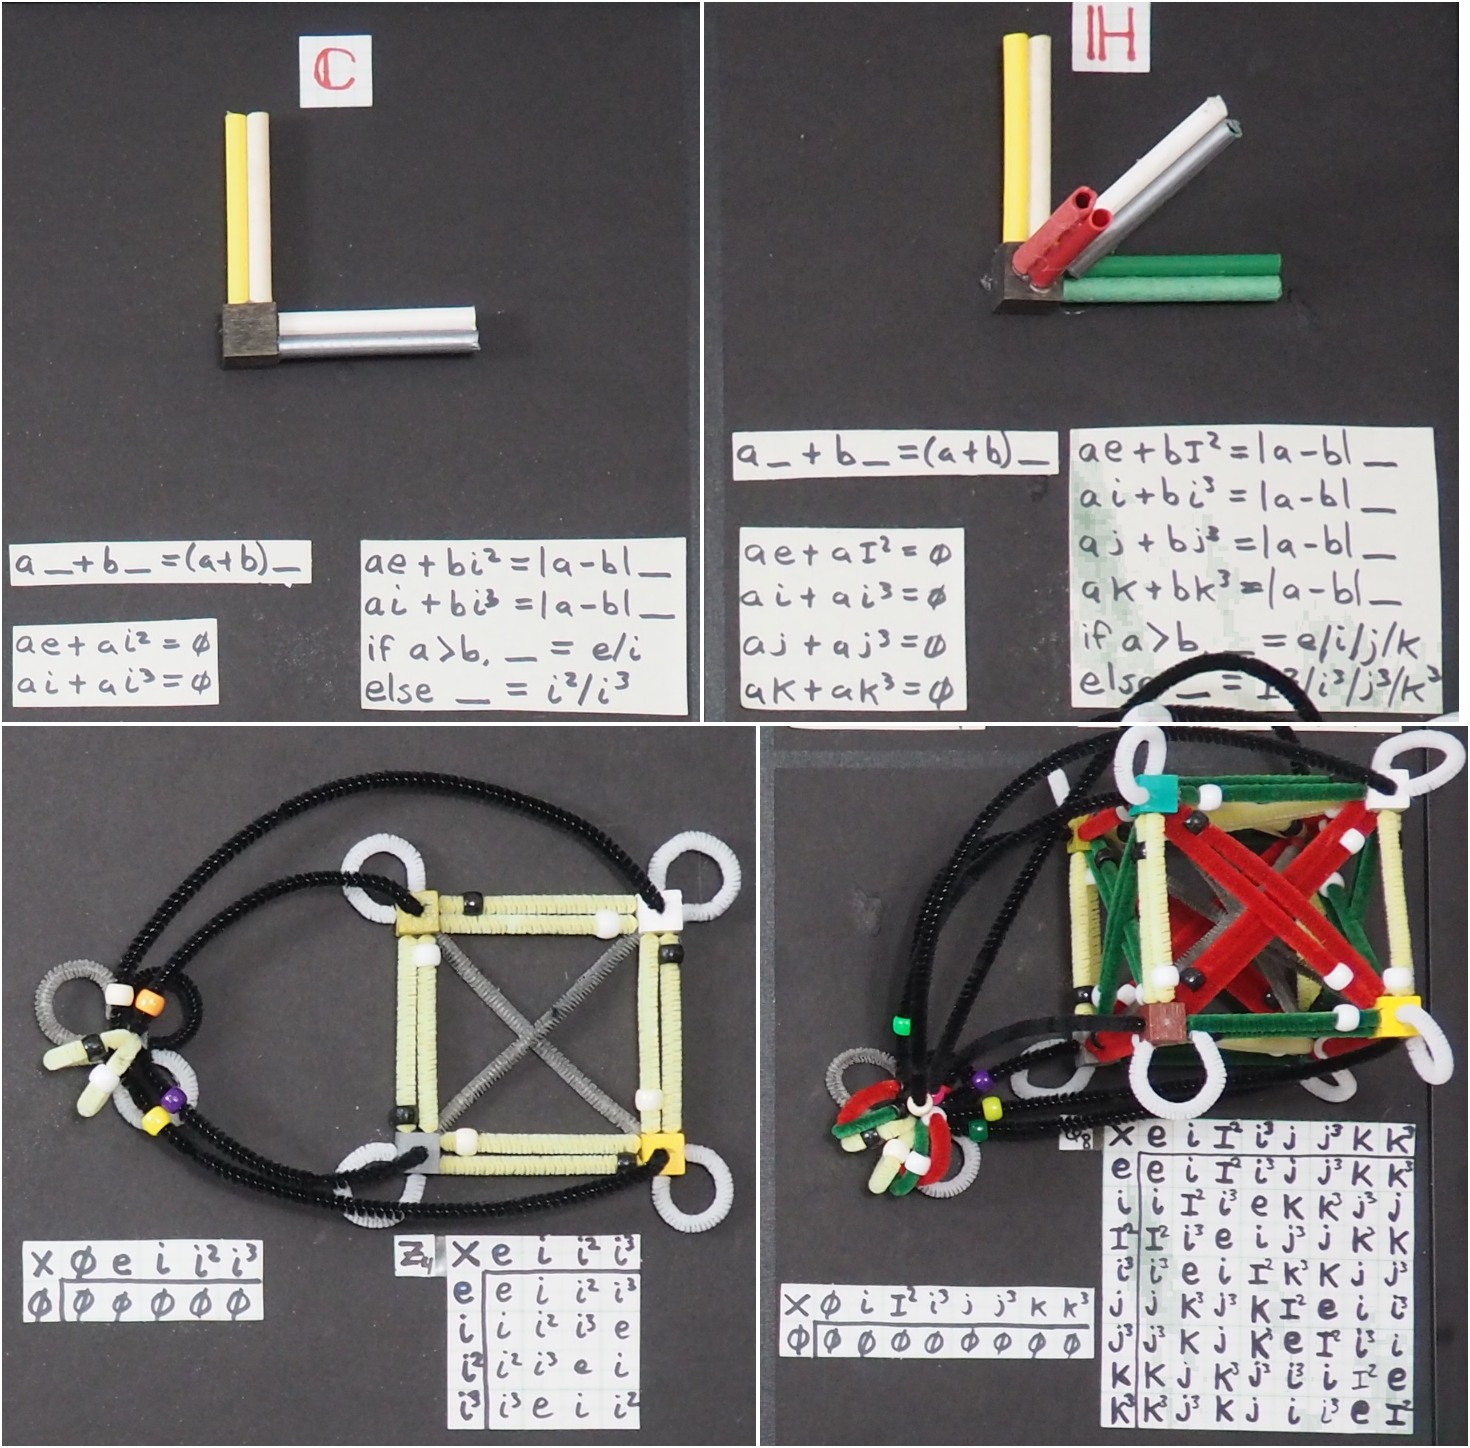 ℂ
a _ + b _ = (a+b) _
ae + ai² = ∅
ai + ai³ = ∅
ae + bi² = |a-b| _
ai + bi³ = |a-b| _
if a>b, _ = e/i
else _ = i²/i³
ℍ
a _ + b _ = (a+b) _
ae + aI² = ∅
ai + ai³ = ∅
aj + aj³ = ∅
ak + ak³ = ∅
ae + bI² = |a-b| _
ai + bi³ = |a-b| _
aj + bj³ = |a-b| _
ak + bk³ = |a-b| _
if a>b, _ = e/i/j/k
else _ = I²/i³/j³/k³
X ∅ e i i² i³
∅ ∅ ∅ ∅ ∅ ∅
Z₄ X e i i² i³
e e i i² i³
i i i² i³ e
i² i² i³ e i
i³ i³ e i i²
X ∅ i I² i³ j j³ k k³
∅ ∅ ∅ ∅ ∅ ∅ ∅ ∅ ∅
Q₈ X e i I² i³ j j³ k k³
e e i I² i³ j j³ k k³
i i I² i³ e k k³ j³ j
I² I² i³ e i j³ j k³ k
i³ i³ e i I² k³ k j j³
j j k³ j³ k I² e i i³
j³ j³ k j k³ e I² i³ i
k k j k³ j³ i³ i I² e
k³ k³ j³ k j i i³ e I²